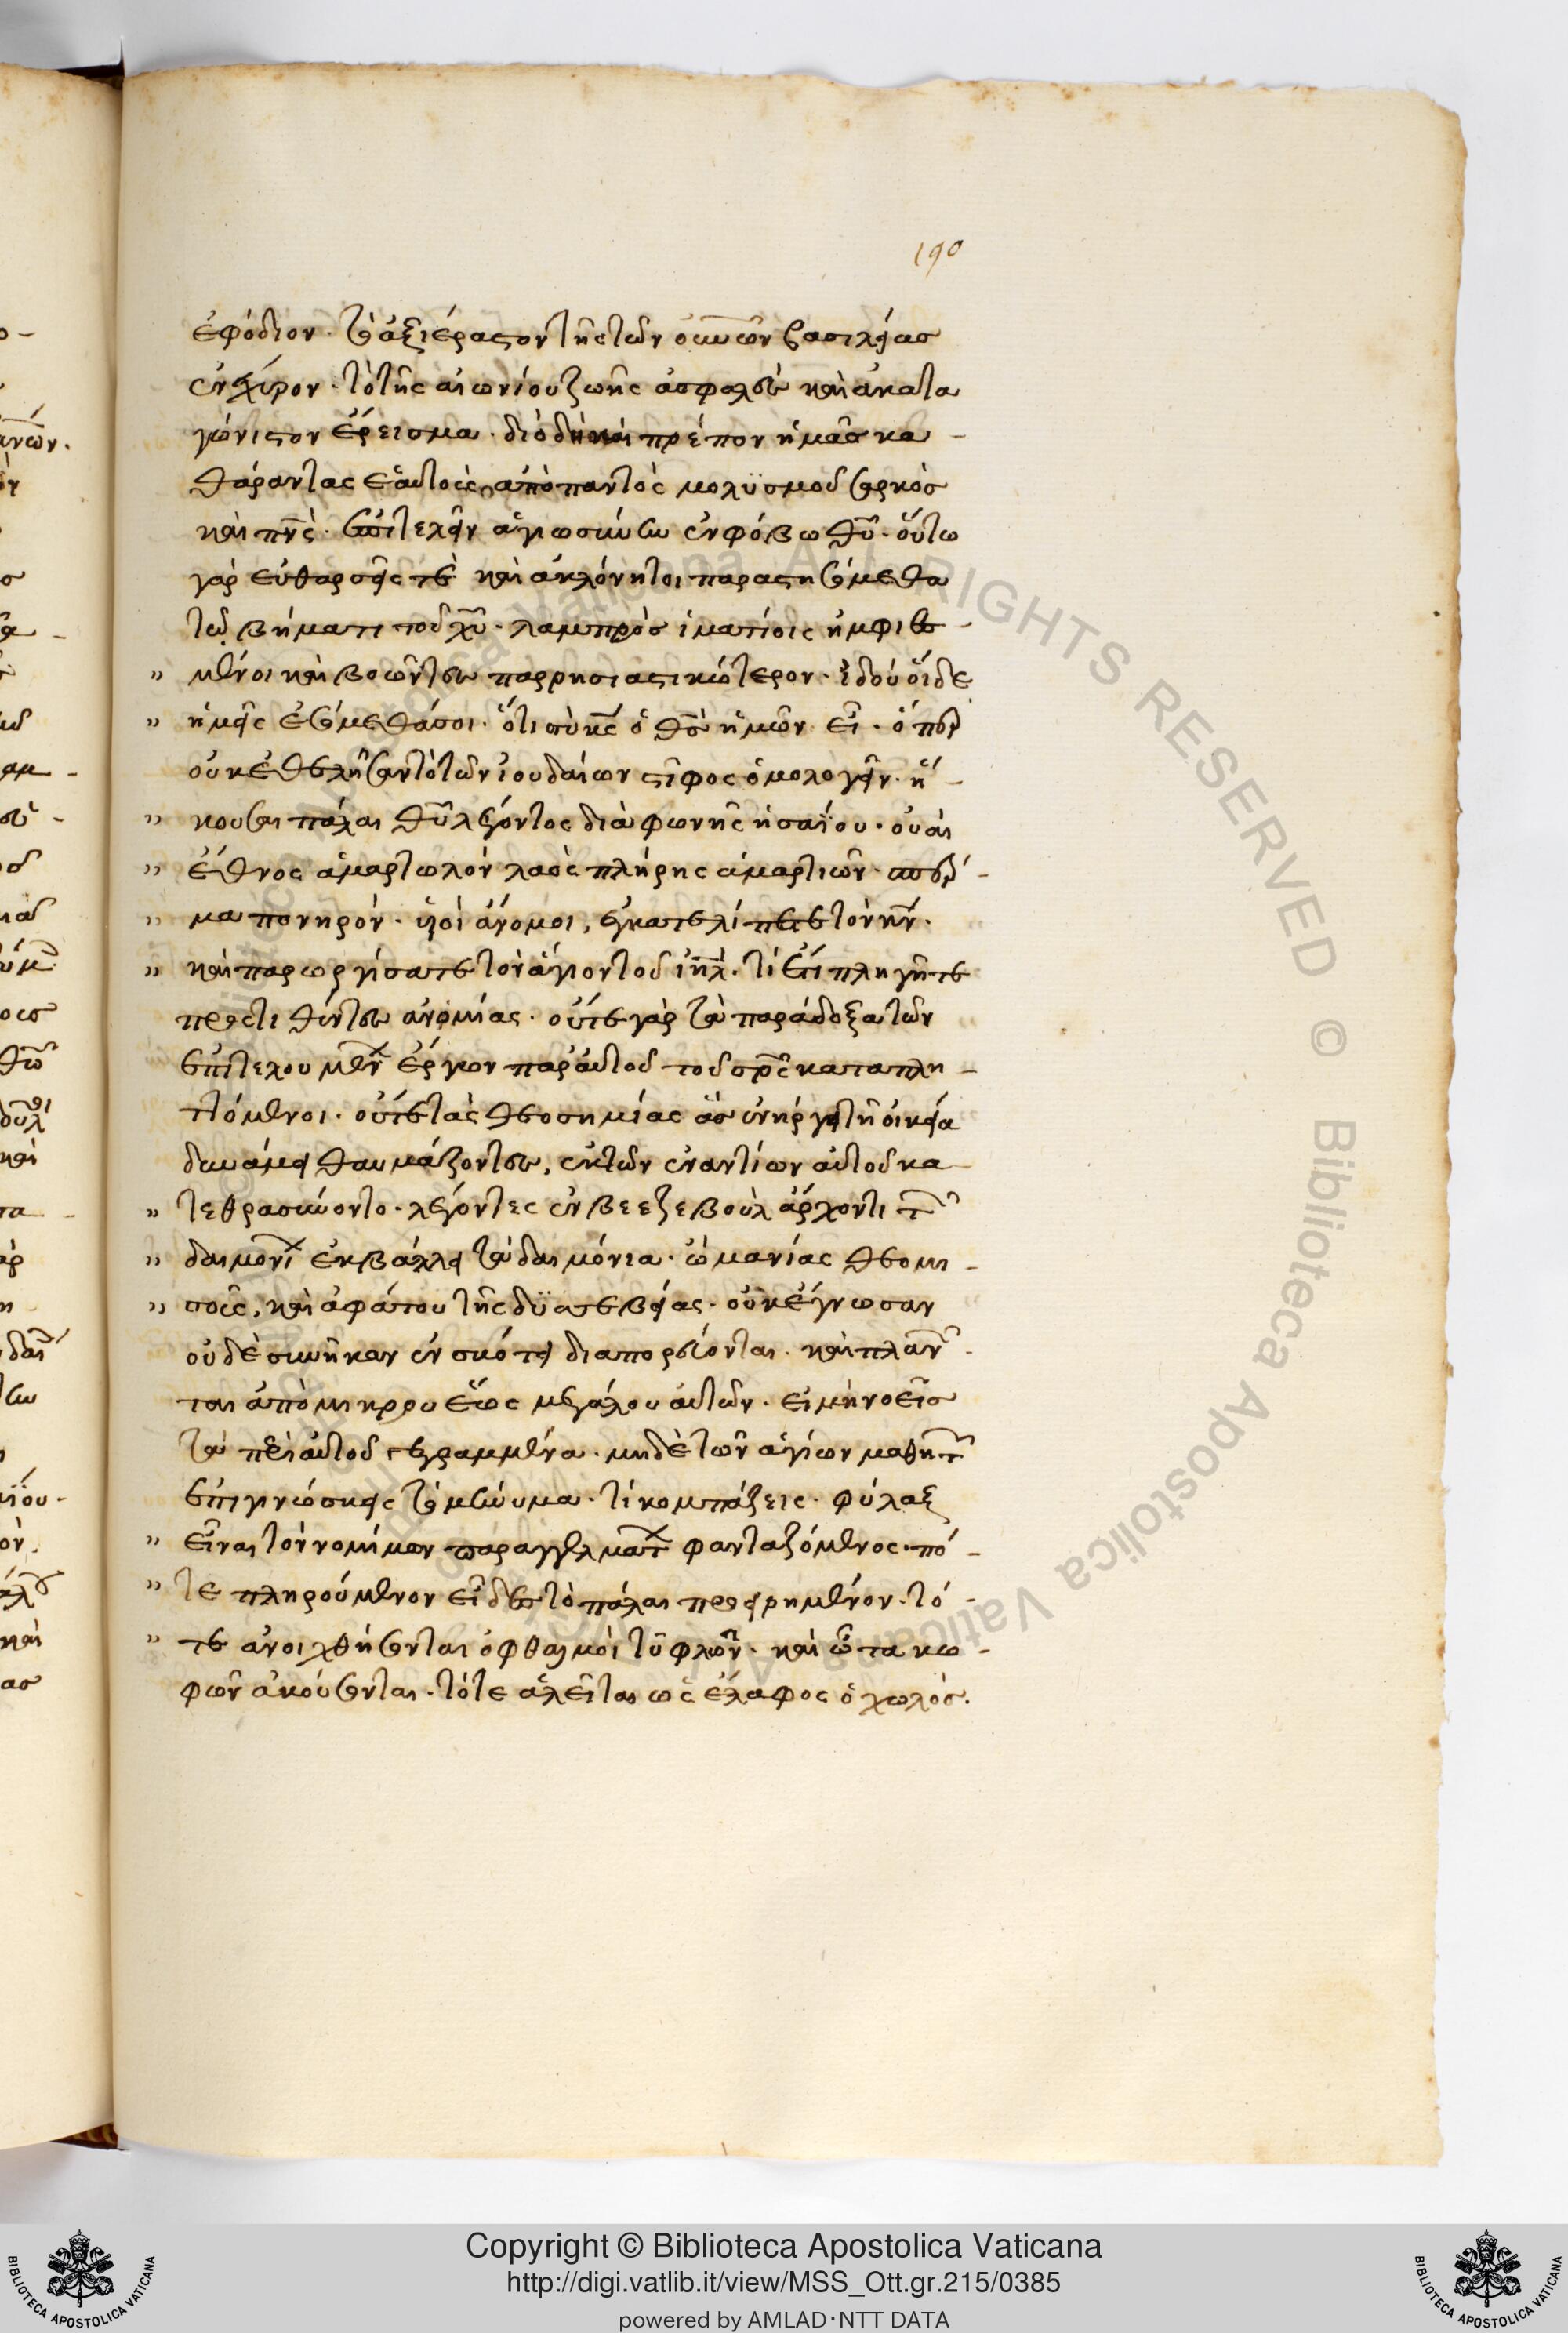 190
ἐφόδιον· τὸ ἀξιέραστον τῆς τῶν οὐνῶν βασιλείας
ἐνέχυρον· τὸ τῆς αἰωνίου ζωῆς ἀσφαλὲς καὶ ἀκατα
γώνιστον ἔρεισμα· διὸ δὴ καὶ πρέπον ἡμᾶς κα-
θάραντας ἑαυτοὺς ἀπὸ παντὸς μολϋσμοῦ σαρκὸς
καὶ πνς· ἐπιτελεῖν ἁγιωσύνην ἐν φόβω θῦ· οὕτω
γὰρ εὐθαρσεῖς τὲ καὶ ἀκλόνητοι παραστησόμεθα
τῶ βήματι τοῦ χῦ· λαμπροῖς ἱματίοις ἠμφιε-
" μένοι καὶ βοῶντες παρρησιαστικώτερον· ἰδοὺ οἵδε
" ἡμεῖς ἐσόμεθά σοι· ὅτι σὺ κς ὁ θς ἡμῶν εἶ· ὅπερ
οὐκ ἐθελῆσαν τὸ τῶν ἰουδαίων στῖφος ὁμολογεῖν· ἤ-
" κουσαι πάλαι θῦ λέγοντος διὰ φωνῆς ἡσαΐου· οὐαὶ
" ἔθνος ἁμαρτωλὸν λαὸς πλήρης ἁμαρτιῶν· σπέρ-
" μα πονηρόν· υἱοὶ ἄνομοι, ἐγκατελίπετε τὸν κν·
" καὶ παρωργίσατε τὸν ἅγιον τοῦ ἰηλ· τί ἔτι πληγῆτε
προστιθέντες ἀνομίας· οὔτε γὰρ τὰ παράδοξα τῶν
ἐπιτελουμένων ἔργων παρ' αὐτοῦ τοῦ σρς καταπλη-
ττόμενοι· οὔτε τὰς θεοσημίας ἃς ἐνήργει τῆ οἰκεία
δυνάμει θαυμάζοντες, ἐκ τῶν ἐναντίων αὐτοῦ κα-
" τεθρασύνοντο· λέγοντες ἐν βεεζεβοὺλ ἄρχοντι τῶν
" δαιμονίων ἐκβάλλει τὰ δαιμόνια· ὢ μανίας θεομι-
" σοῦς, καὶ ἀφάτου τῆς δϋσσεβείας· οὐκ ἔγνωσαν
οὐδὲ συνῆκαν ἐν σκότει διαπορεύονται· καὶ πλανῶν-
ται ἀπὸ μικροῦ ἕως μεγάλου αὐτῶν· εἰ μὴ νοεῖς
τὰ περὶ αὐτοῦ γεγραμμένα· μηδὲ τῶν ἁγίων μαθητῶν
ἐπιγινώσκεις τὸ μήνυμα· τί κομπάζεις· φύλαξ
" εἶναι τῶν νομίμων παραγγελμάτων φανταζόμενος· πό-
" τε πληρούμενον εἶδες τὸ πάλαι προειρημένον· τό-
" τε ἀνοιχθήσονται ὀφθαλμοὶ τϋφλῶν· καὶ ὦτα κω-
φῶν ἀκούσονται· τότε ἁλεῖται ὡς ἔλαφος ὁ χωλός.
ALL RIGHTS RESERVED © Biblioteca Apostolica Vaticana
Copyright © Biblioteca Apostolica Vaticana
http://digi.vatlib.it/view/MSS_Ott.gr.215/0385
powered by AMLAD·NTT DATA
BIBLIOTECA APOSTOLICA VATICANA
BIBLIOTECA APOSTOLICA VATICANA